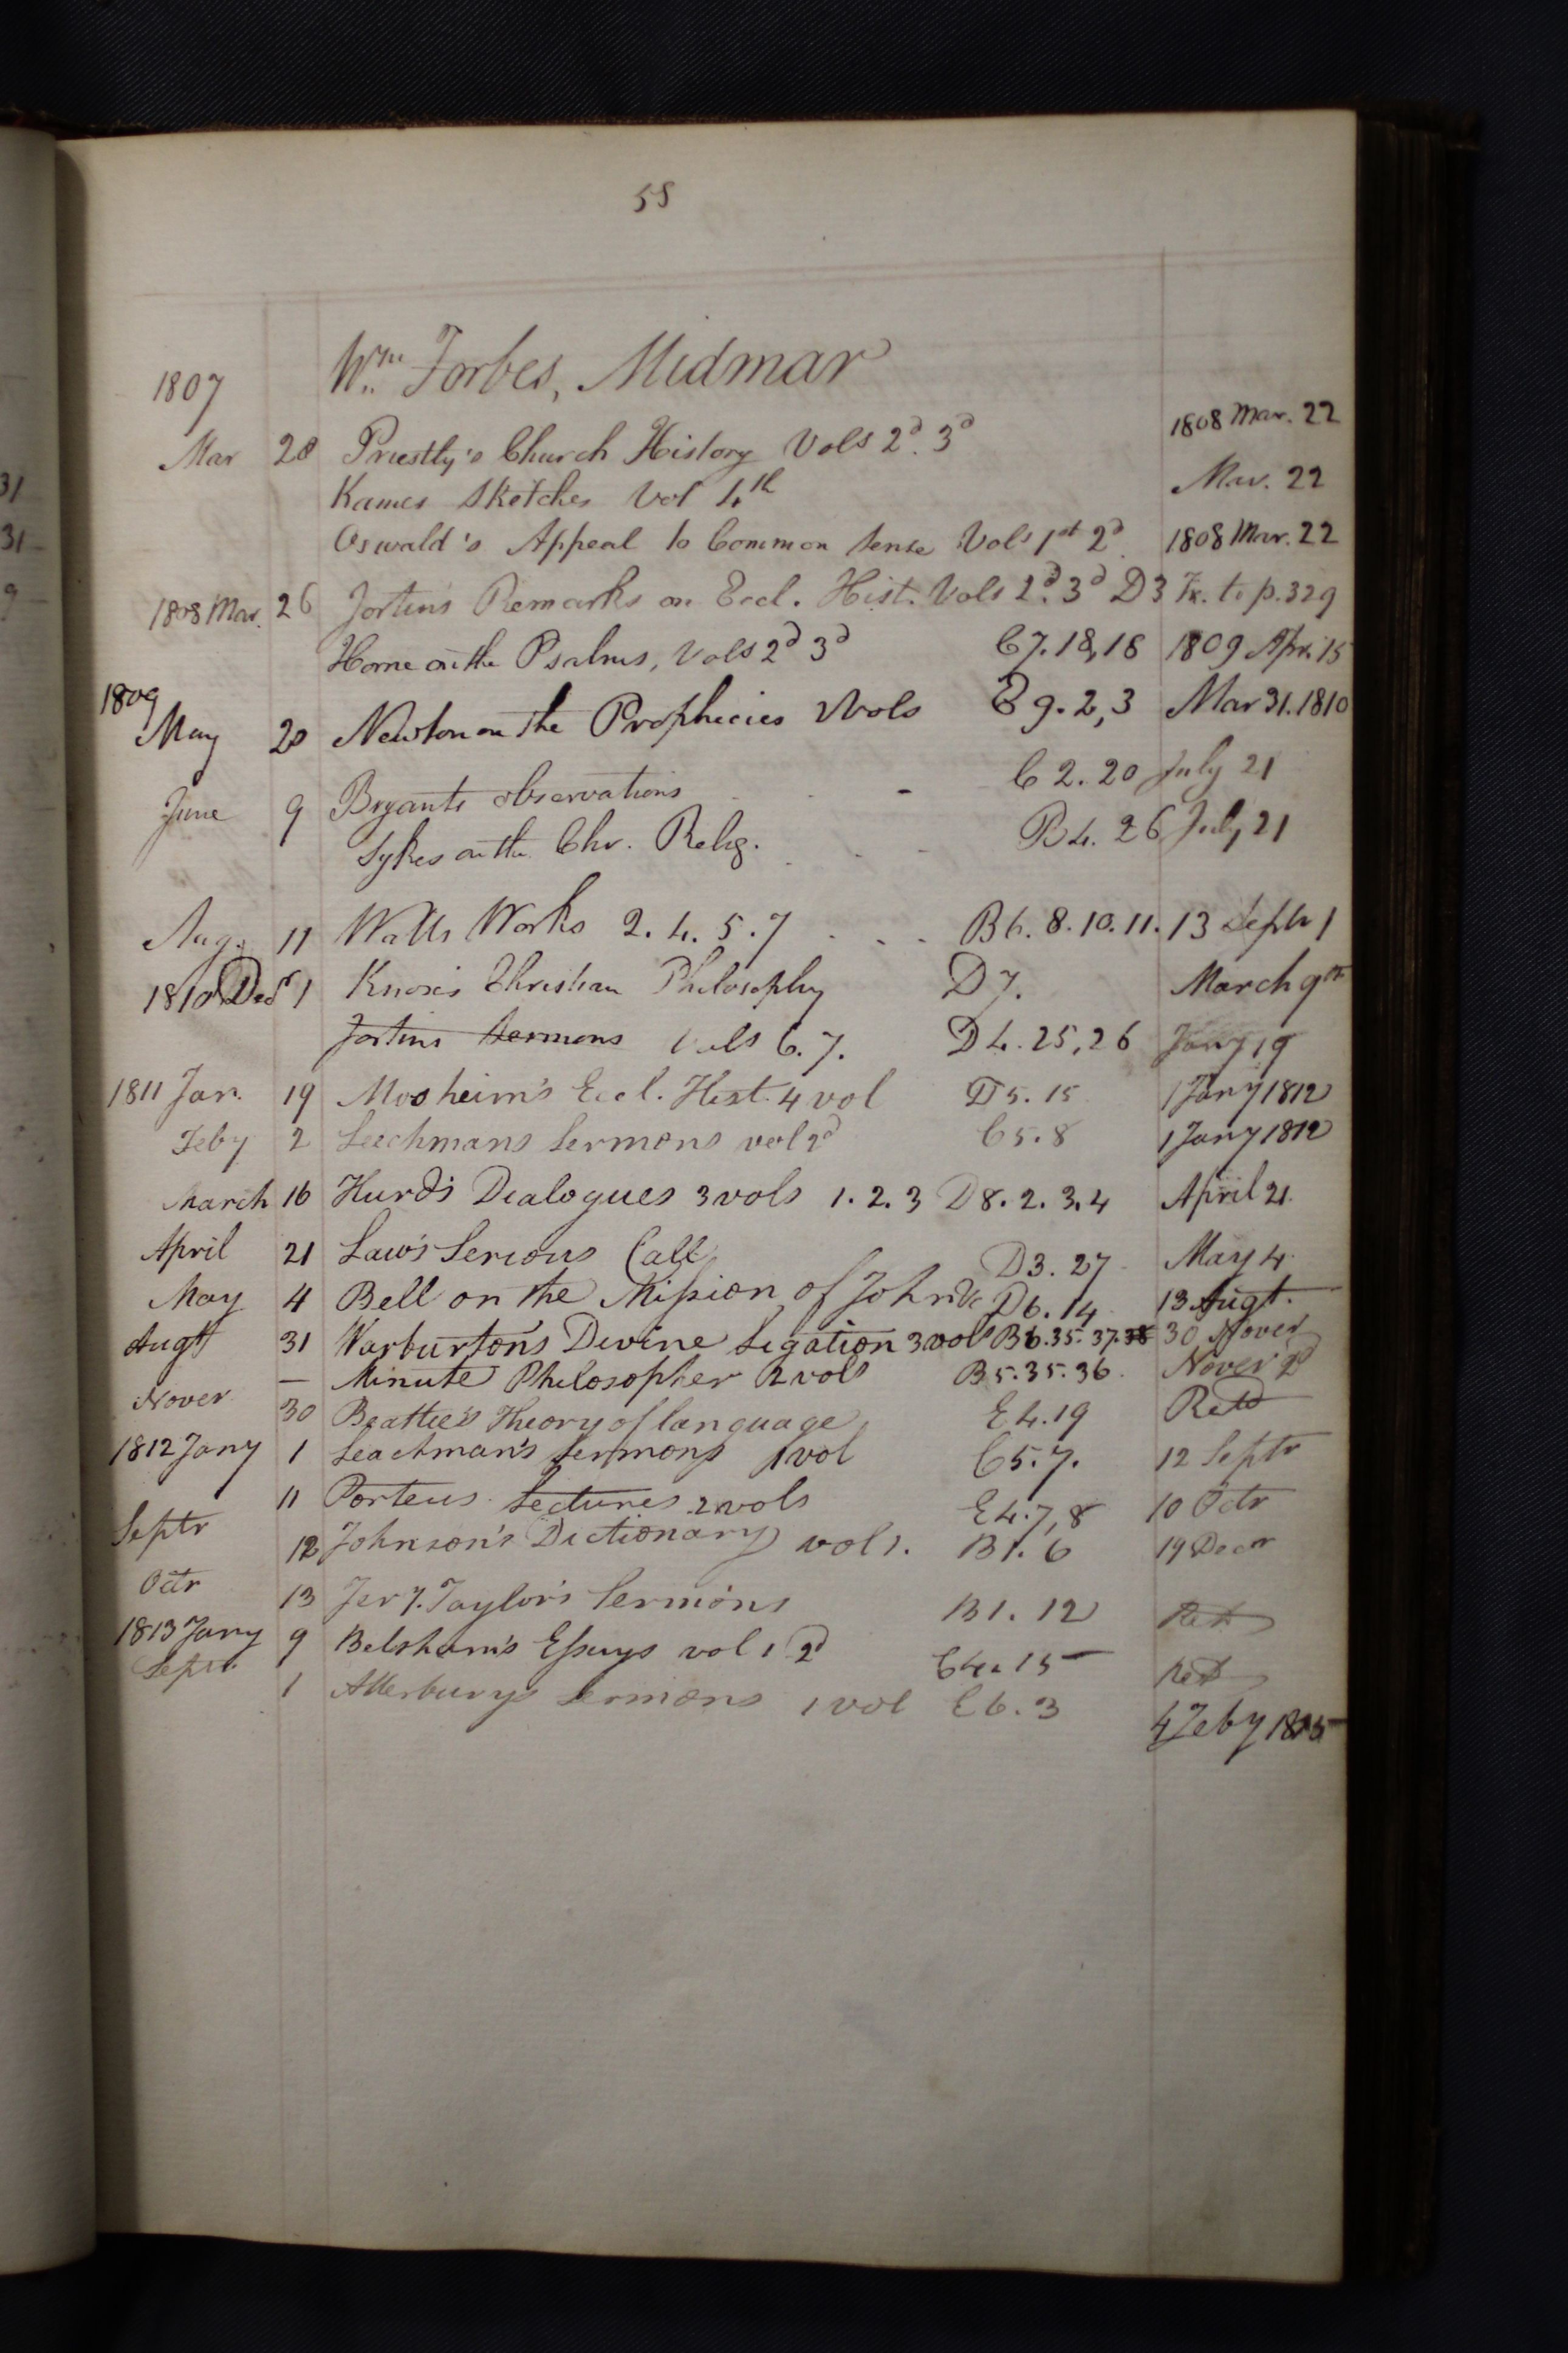 58
1807 Wm Forbes, Midmar
Mar 28 Priestly's Church History Vols 2d. 3d 1808 Mar. 22
Kames Sketches Vol 4th Mar. 22
Oswald's Appeal to Common Sense Vols 1st 2d. 1808 Mar. 22
1808 Mar. 26 Jortin's Remarks on Eccl. Hist. Vols 2d. 3d D3 Fr. to p. 329
Horne on the Psalms, Vols 2d 3d C7. 18,18 1809 Apr. 15
1809
May 20 Newton on the Prophecies 2 Vols E9. 2,3 Mar 31. 1810
June 9 Bryants observations - C2. 20 July 21
Sykes on the Chr. Relig. . . . B4. 26 July 21
Aug. 11 Watts Works 2. 4. 5. 7 . . . B6. 8. 10. 11. 13 Septr 1
1810 Decr 1 Knox's Christian Philosophy D7. March 9th
Jortins Sermons Vols 6. 7. D4. 25, 26 Jany 19
1811 Jan. 19 Mosheim's Eccl. Hist. 4 vol D5. 15 1 Jany 1812
Feby 2 Leechmans Sermons vol 2d C5. 8 1 Jany 1812
March 16 Hurd's Dialogues 3 vols 1. 2. 3 D8. 2. 3. 4 April 21.
April 21 Law's Serious Call D3. 27 May 4.
May 4 Bell on the Mission of John &c D6. 14 13 Augt.
Augt 31 Warburton's Divine Legation 3 vols B6. 35. 37. 38 30 Nover
— Minute Philosopher 2 vols B5. 35. 36. Nover 2d
Nover 30 Beattie's Theory of language E4. 19 Retd
1812 Jany 1 Leachman's Sermons 1 vol C5. 7. 12 Septr
11 Porteus Lectures 2 vols E4. 7, 8 10 Octr
Septr 12 Johnson's Dictionary vol 1. B1. 6 19 Decr
Octr 13 Jery. Taylor's Sermons B1. 12 Retd
1813 Jany 9 Belsham's Essays vol 1 2d C4. 15 Retd
Septr 1 Atterburys Sermons 1 vol E6. 3 4 Feby 1815